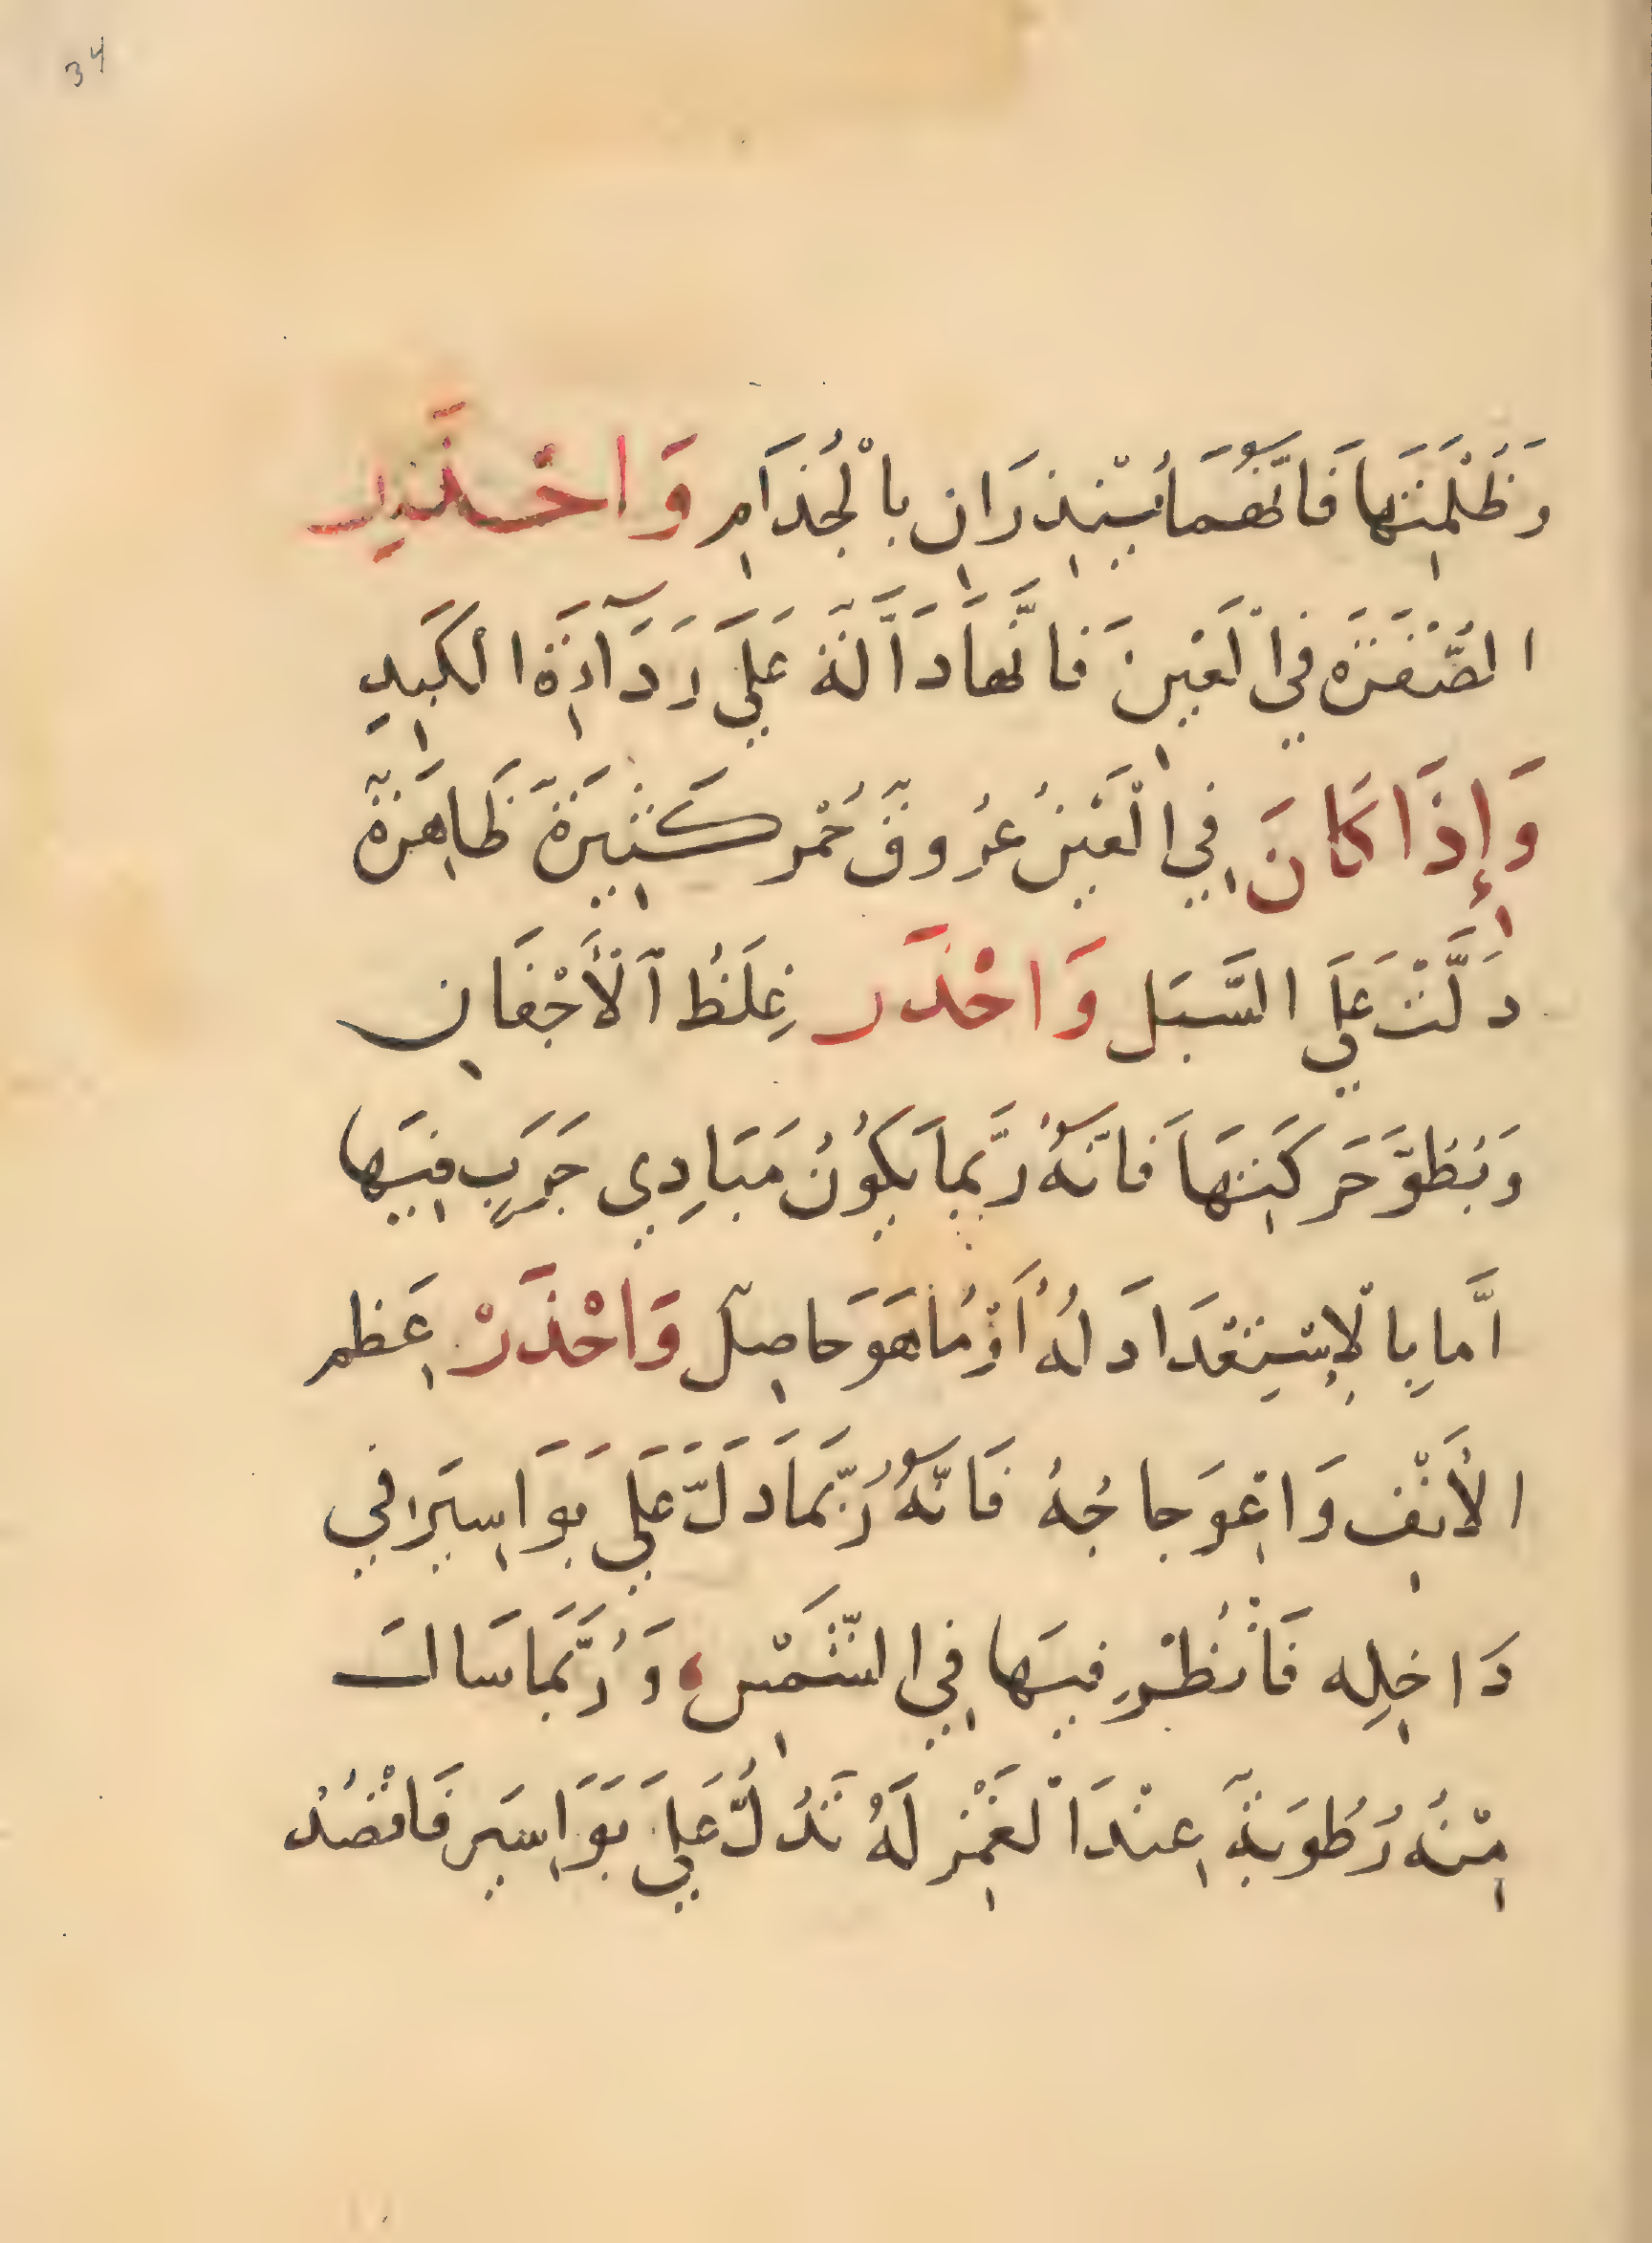 34
وَظُلْمَتِهَا فَانَّهُمَا يُنْذِرَانِ بِالْجُذَامِ وَاحْذَرِ
الصُّفْرَةَ فِي الْعَيْنِ فَانَّهَا دَالَّةٌ عَلَي رَدَآءَةِ الْكَبِدِ
وَإِذَا كَانَ فِي الْعَيْنِ عُرُوقٌ حُمْر كَثِيرَةٌ ظَاهِرَةٌ
دَلَّتْ عَلَي السَّبَل وَاحْذَر غِلَظُ الْأَجْفَانِ
وَبُطُوَّ حَرَكَتِهَا فَانَّهُ رُبَّمَا يَكُوُنُ مَبَادِي جَرَبٍ فِيَهَا
اَمَّا بِالْاِسْتِعْدَادَ لَهُ أَوْ مُا هَوَ حَاصِلٌ وَاحْذَرْ عِظَم
الأَنْفِ وَاعْوَجاجُهُ فَانَّهُ رُبَّمَا دَلَّ عَلَي بَوَاسِيَر في
دَاخِلِه فَانْظُرْ فِيَهَا فِي الشَّمْسِ وَرُبَّمَا سَالَتَ
مِنْهُ رُطُوَبَةٌ عِنْدَ الْغَمْزِ لَهُ تَدُلُّ عَلَي بَوَاسِيَر فَاقْصُدْ